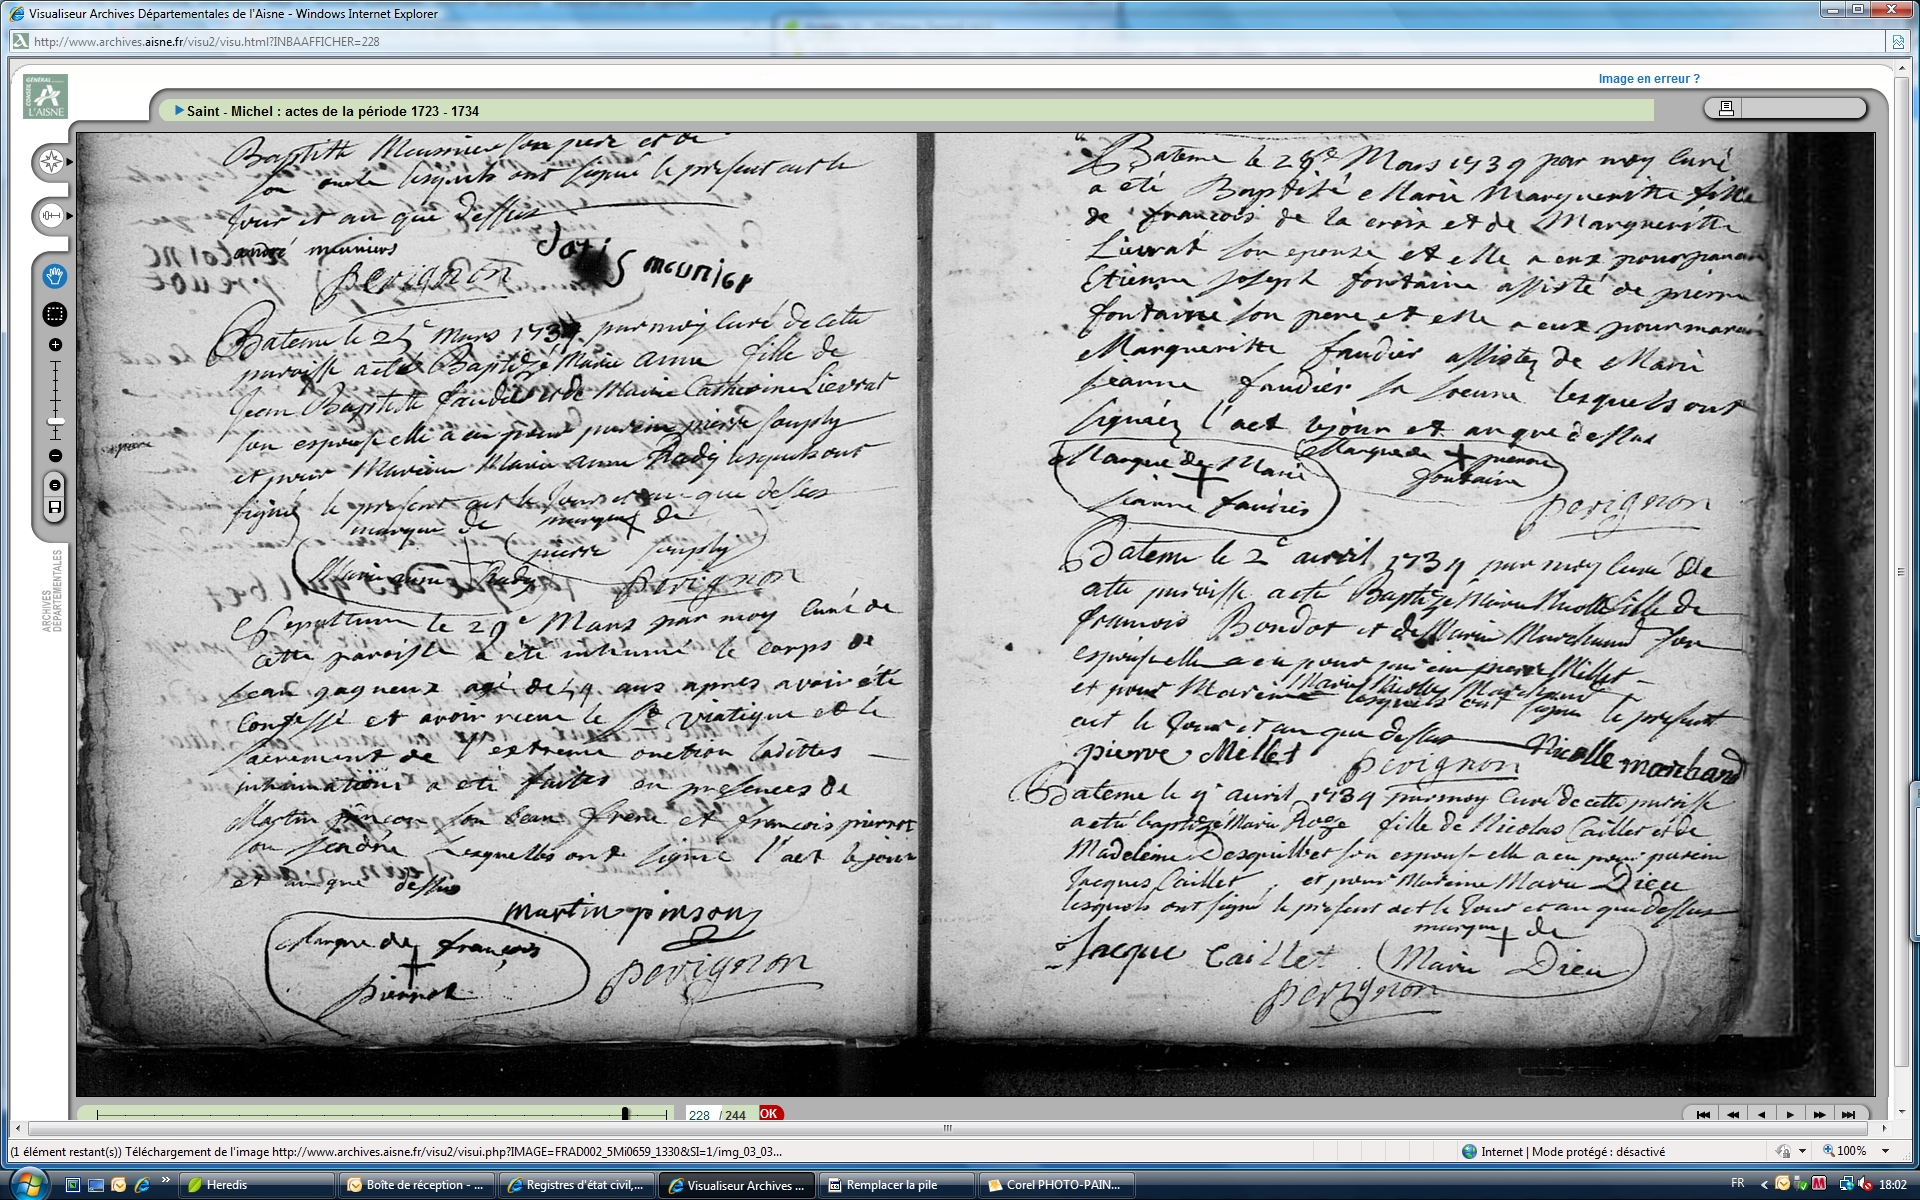 Visualiseur Archives Départementales de l'Aisne - Windows Internet Explorer
http://www.archives.aisne.fr/visu2/visu.html?INBAAFFICHER=228
Image en erreur ?
CONSEIL GÉNÉRAL
L'AISNE
Saint - Michel : actes de la période 1723 - 1734
ARCHIVES DÉPARTEMENTALES
son père et de
son lesquels ont signé le present act le
Jour et an que dessus
andré meuniers
meunier
perignon
Bateme le 25e Mars 1734 par moy Curé de cette
paroisse a eté Baptizé Marie anne fille de
Jean Baptiste faudier et de Marie Catherine Lievrat
son espouse elle a eu pour parein pierre Souply
et pour Mareine Marie anne Rady lesquels ont
signéz le present act le Jour et an que dessus
marque de marque de
Marie anne Rady pierre Souply
perignon
Sepulture le 29e Mars par moy Curé de
cette paroisse a eté inhumé le corps de
Jean gagneux agé de 44 ans apres avoir été
Confessé et avoir recue le St viatique et le
sacrement de l'extreme onction laditte
inhumation a eté faites en presences de
Martin pinçon son beau frere et françois pierrot
son gendre Lesquelles ont signé l'act le jour
et an que dessus
martin pinson
Marque de françois
pierrot
perignon
Bateme le 28e Mars 1734 par moy Curé
a été Baptisé Marie Margueritte fille
de françois de la croix et de Margueritte
Lievrat son epouse et elle a eux pour parain
Etienne Joseph fontaine assisté de pierre
fontaine son pere et elle a eux pour marain
Margueritte faudier assistez de Marie
jeanne faudier sa soeure lesquels ont
signéz l'act le jour et an que dessus
Marque de Marie
jeanne faudies
Marque de pierre
fontaine
perignon
Bateme le 2e avril 1734 par moy Curé de
cette paroisse a eté Baptizé Marie Nicolle fille de
francois Bondot et de Marie Marchand son
espouse elle a eu pour parein pierre Millet
et pour Mareine Marie Nicolle Marchand
lesquels ont signé le present
act le Jour et an que dessus
pierre Mellet perignon Nicolle marchand
Bateme le 4e avril 1734 par moy Curé de cette paroisse
a eté baptizé Marie Roze fille de Nicolas Caillet et de
Madeleine Desquilbet son espouse elle a eu pour parein
Jacques Caillet, et pour Mareine Marie Dieu
lesquels ont signé le present act le Jour et an que dessus
Jacque Caillet
marque de
Marie Dieu
perignon
228 / 244 OK
(1 élément restant(s)) Téléchargement de l'image http://www.archives.aisne.fr/visu2/visui.php?IMAGE=FRAD002_5Mi0659_1330&SI=1/img_03_03...
Internet | Mode protégé : désactivé
100%
Heredis
Boîte de réception - ...
Registres d'état civil,...
Visualiseur Archives ...
Remplacer la pile
Corel PHOTO-PAIN...
FR
18:02